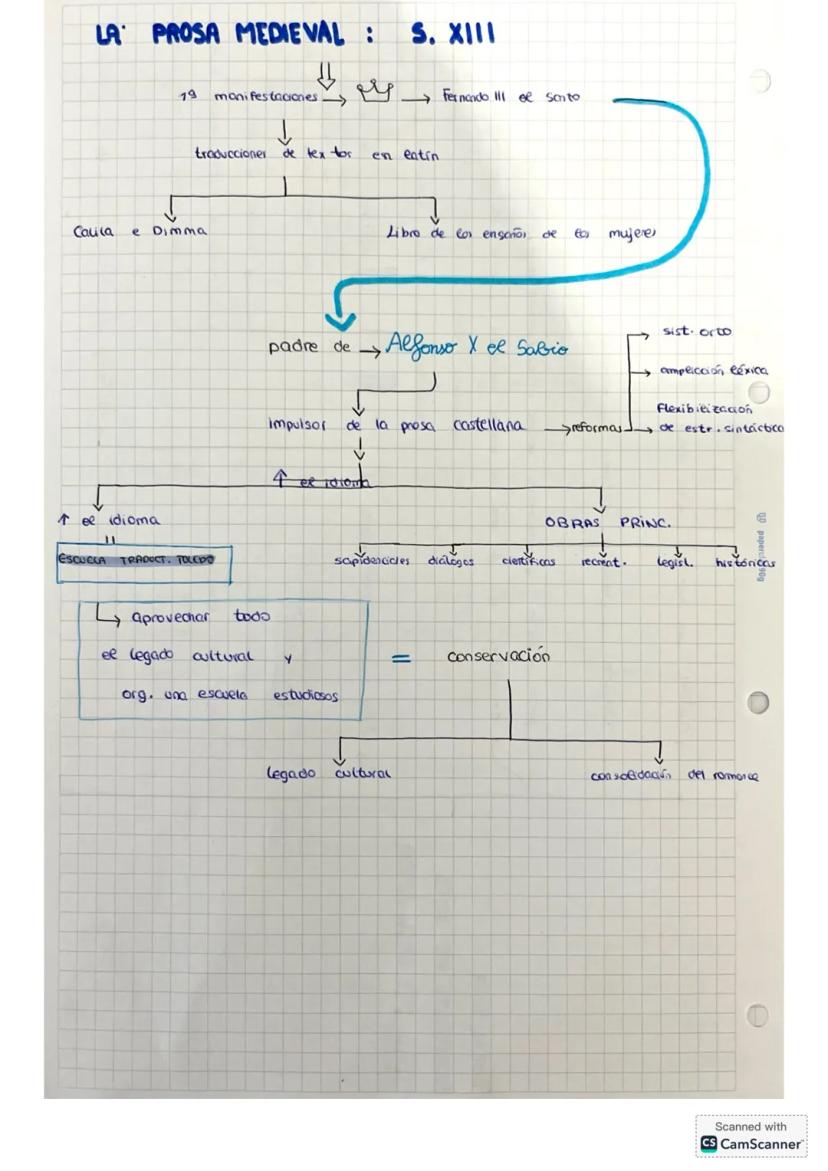 LA PROSA MEDIEVAL : S. XIII
1ª manifestaciones → → Fernando III el Santo
traducciones de textos en latín
Calila e Dimma
Libro de los engaños de las mujeres
padre de → Alfonso X el Sabio
sist. orto
ampliación léxica
Flexibilización
de estr. sintáctica
impulsor de la prosa castellana → reformas
↑ el idioma
↑ el idioma
OBRAS PRINC.
ESCUELA TRADUCT. TOLEDO
sapidenciales diálogos científicas recreat. legisl. históricas
aprovechar todo
el legado cultural y
org. una escuela estudiosos
= conservación
legado cultural
consolidación del romance
Scanned with
CS CamScanner